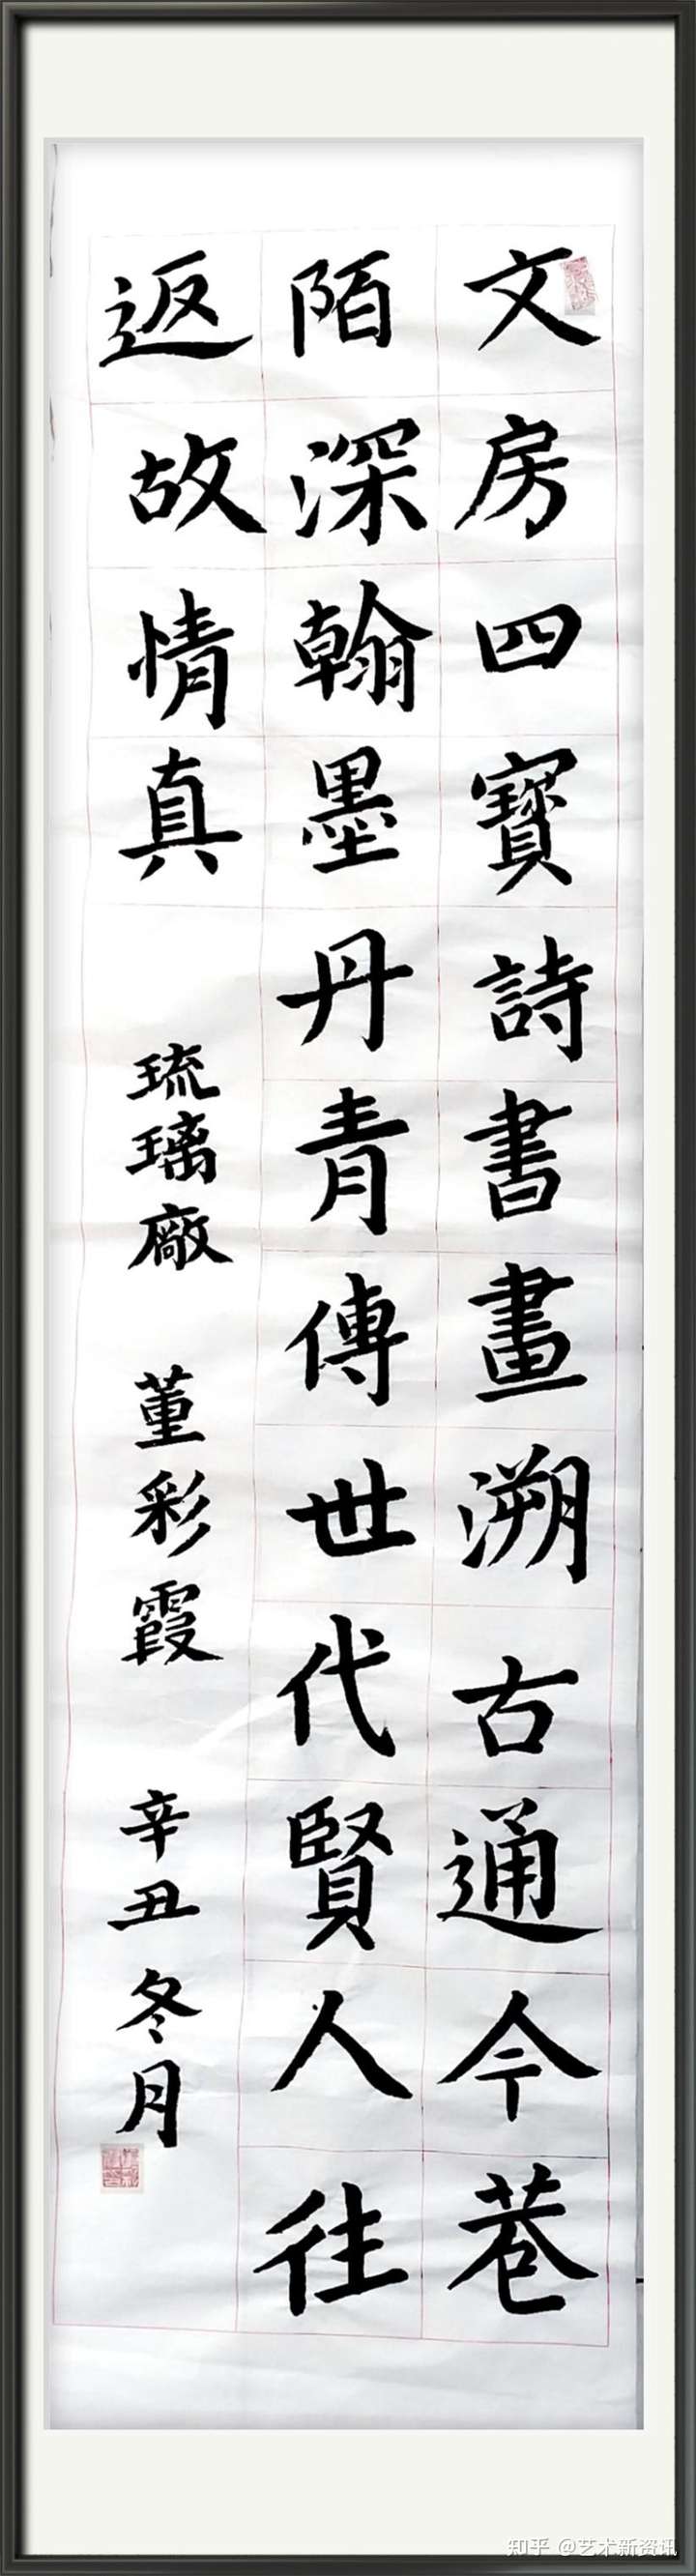 文房四寳詩書畫溯古通今巷
陌深翰墨丹青傳世代賢人往
返故情真
琉璃廠 董彩霞 辛丑冬月
知乎 @艺术新资讯